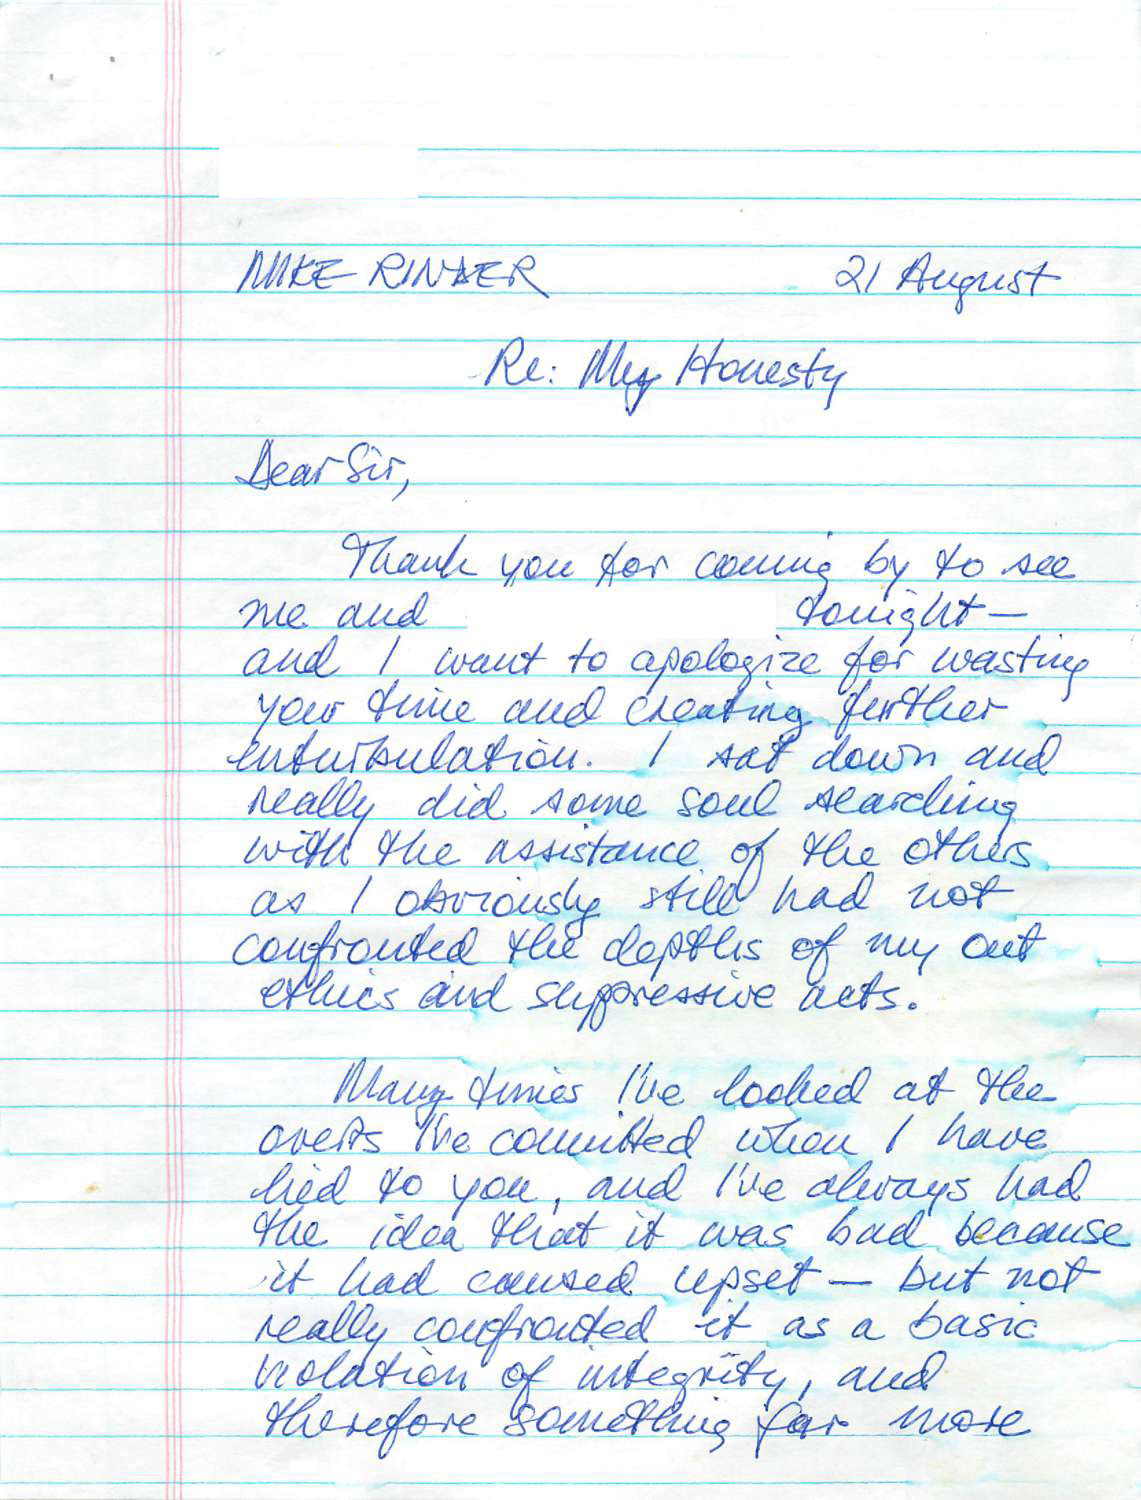 MIKE RINDER 21 August
Re: My Honesty
Dear Sir,
Thank you for coming by to see
me and tonight —
and I want to apologize for wasting
your time and creating further
enturbulation. I sat down and
really did some soul searching
with the assistance of the others
as I obviously still had not
confronted the depths of my out
ethics and suppressive acts.
Many times I've looked at the
overts I've committed when I have
lied to you, and I've always had
the idea that it was bad because
it had caused upset — but not
really confronted it as a basic
violation of integrity, and
therefore something far more